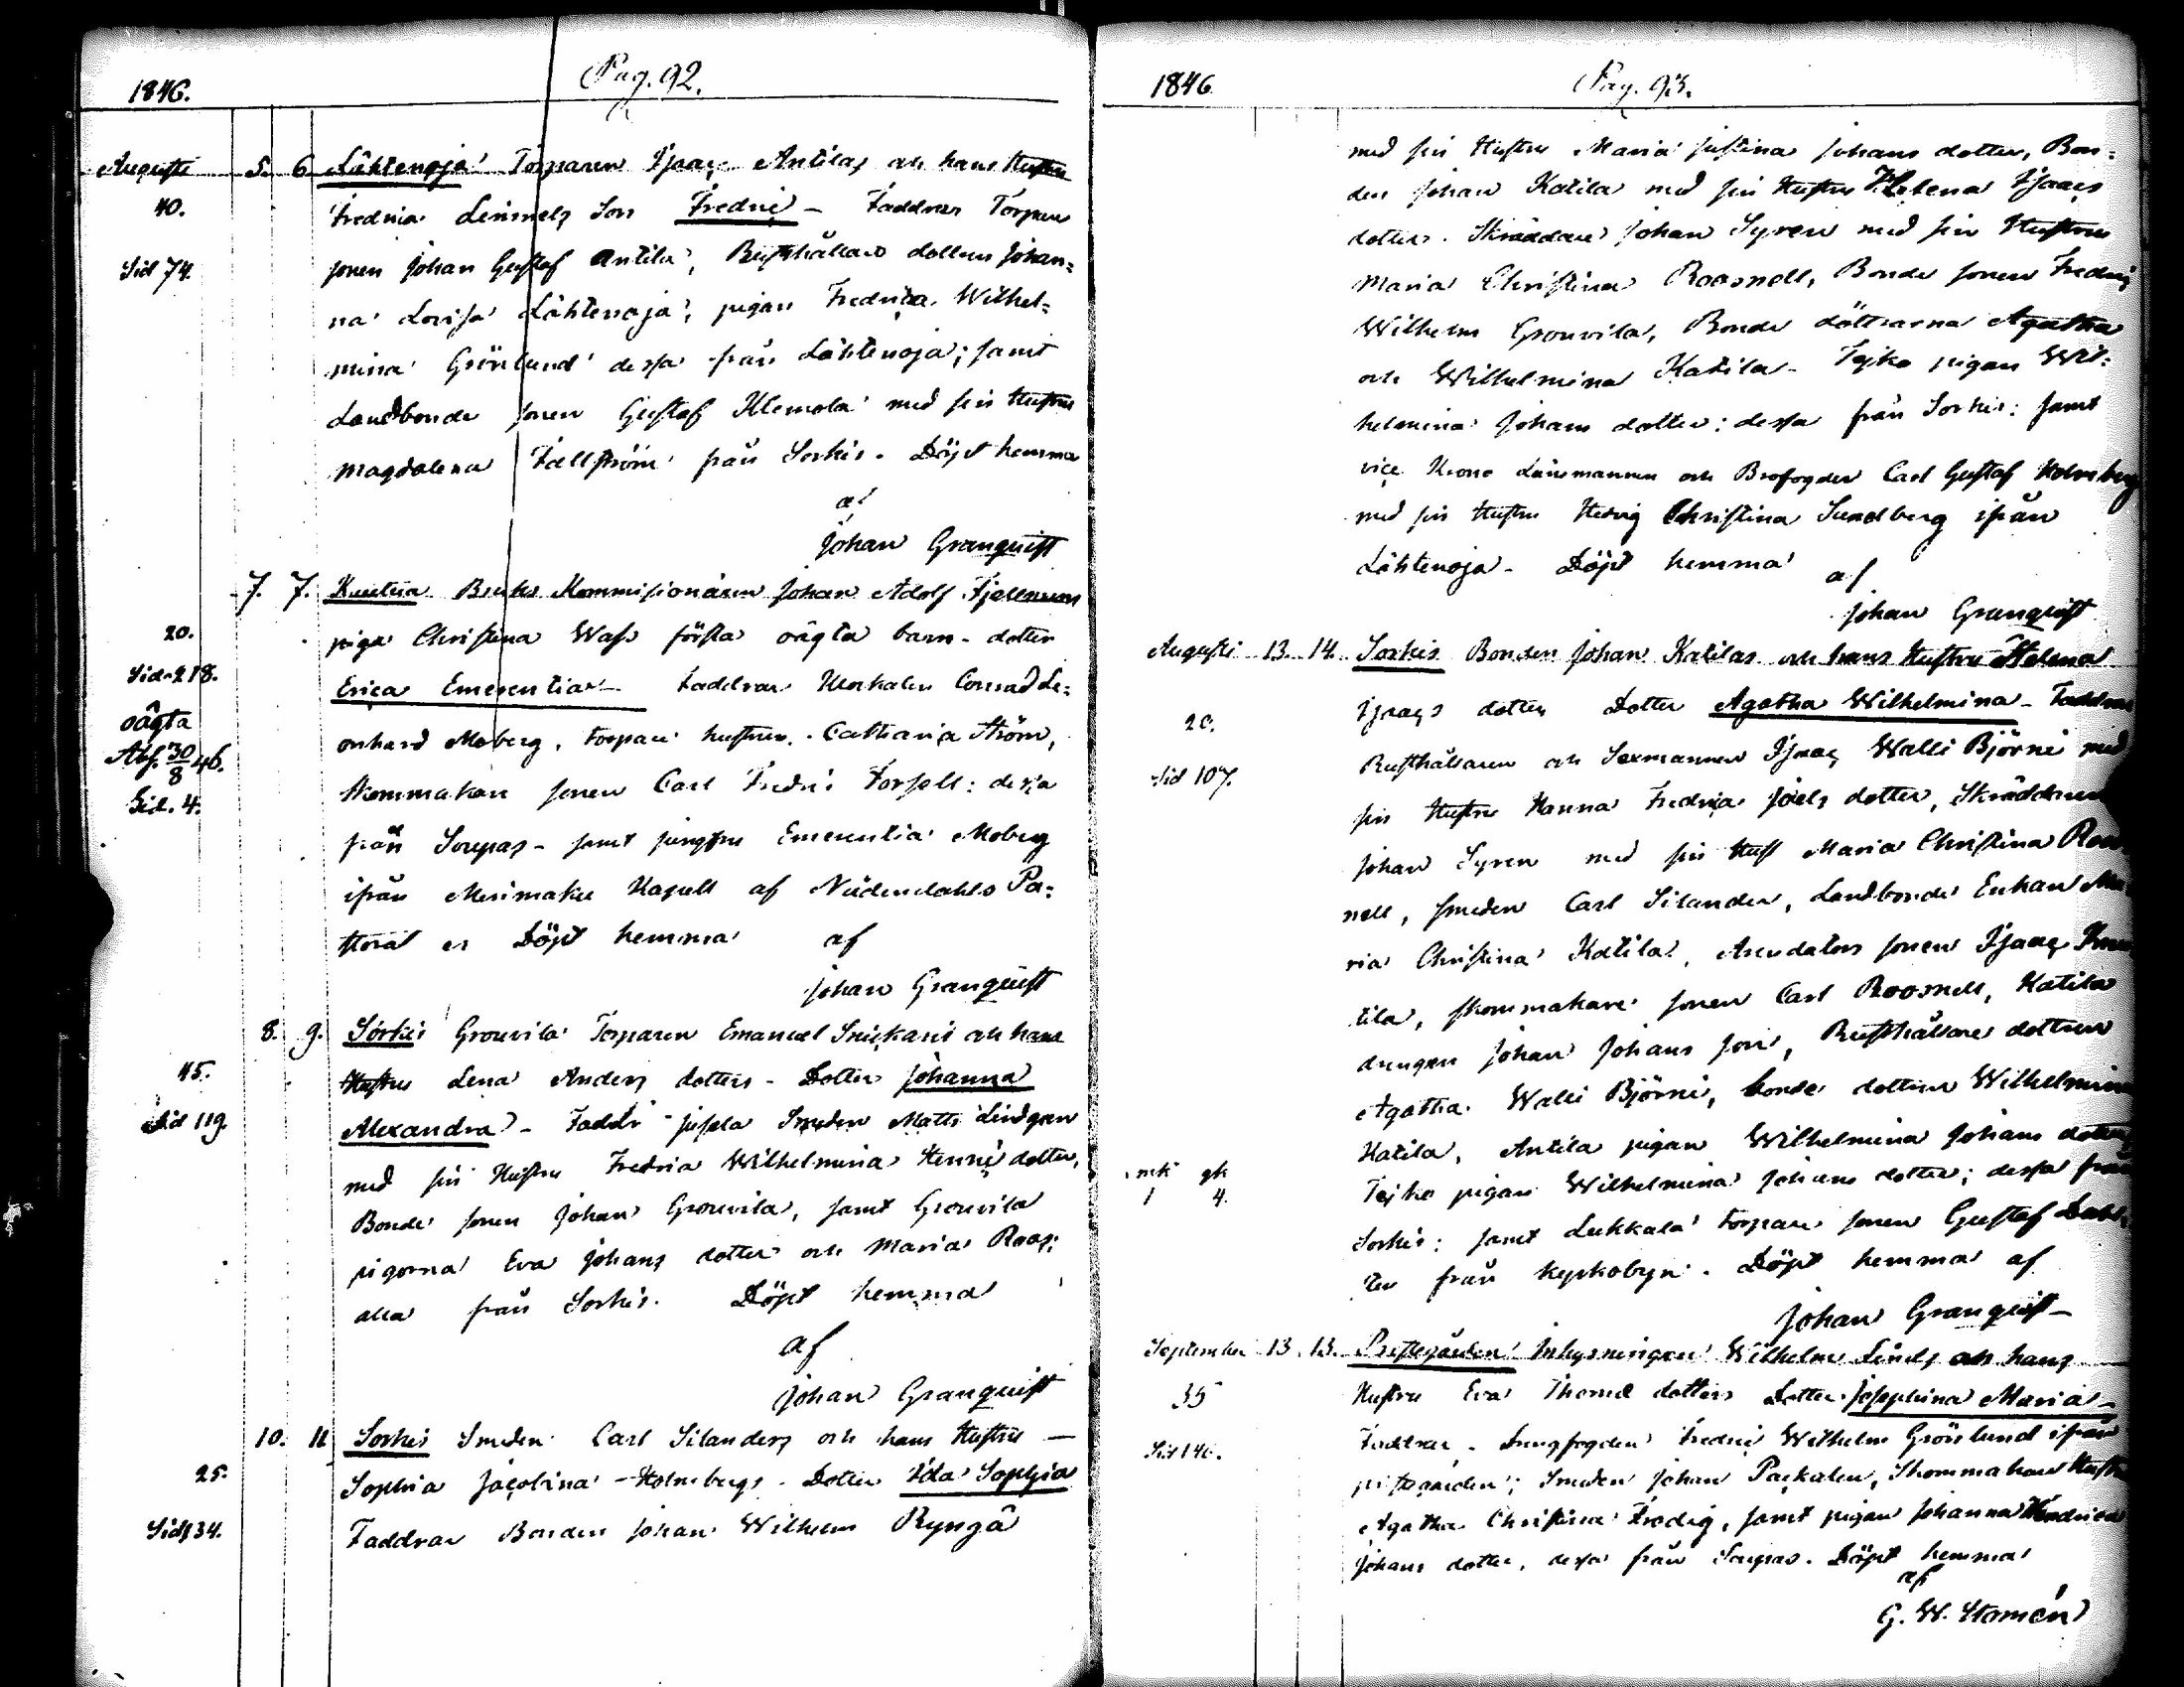 1846.
Pag. 92.
Augusti 5. 6 Lähtenoja Torparen Isaac Antilas och hans Hustru
40.
Fredrica Lemmels Son Fredric - Faddrar Torpare
Sid 74.
sonen Johan Gustaf Antila, Rusthållare dottren Johan=
na Lovisa Lähtenoja, pigan Fredrica Wilhel=
mina Grönlund dessa från Lähtenoja; samt
Landbonde sonen Gustaf Klemola med sin Hustru
Magdalena Fällström från Sorkis. Döpt hemma
af
Johan Granquist
7. 7. Bruks Kommissionären Johan Adolf
20.
piga Christina Wass första oägta barn - dotter
Sid. 218.
Erica Emerentia - Faddrar Conrad Le=
oägta
onhard Moberg, Torpare hustrun Catharina Ström,
Abs. 30/8 46.
Skommakare sonen Carl Fredric Forsell: dessa
Sid. 4.
från - samt jungfru Emerentia Moberg
ifrån Merimasku Kapell af Nådendahls Pa=
storat er Döpt hemma af
Johan Granquist
8. 9. Sorkis Grouvila Torparen Emanuel och hans
45.
Hustru Lena Anders dotters - Dotter Johanna
Sid 119.
Alexandra - Faddr Smeden Matts Lindgren
med sin Hustru Fredrica Wilhelmina dotter,
Bonde sonen Johan Grouvila, samt Grouvila
pigorna Eva Johans dotter och Maria Roos:
alla från Sorkis. Döpt hemma
af
Johan Granquist
10. 11 Sorkis Smeden Carl Silanders och hans Hustru -
25.
Sophia Jacobina Holmbergs - Dotter Ida Sophia
Sid 34.
Faddrar Bonden Johan Wilhelm Ryngä
1846
Pag. 93.
med sin Hustru Maria Justina Johans dotter, Bon=
den Johan Katila med sin Hustru Helena Isaacs
dotter. Skräddare Johan Syren med sin Hustru
Maria Christina Roosnell, Bonde sonen Fredric
Wilhelm Grouvila, Bonde döttrarna Agatha
och Wilhelmina Katila - Tejko pigan Wil=
helmina Johans dotter: dessa från Sorkis: samt
vice Krono Länsmannen och Brofogden Carl Gustaf Holmberg
med sin Hustru Hedvig Christina Sundberg ifrån
Lähtenoja - Döpt hemma af
Johan Granquist
Augusti 13. 14. Sorkis Bonden Johan Katilas och hans Hustru Helena
20.
Isaacs dotters Dotter Agatha Wilhelmina - Faddrar
Sid 107.
Rusthållaren och Sexmannen Isaac Walli Björni med
sin Hustru Hanna Fredrica Joels dotter, Skräddaren
Johan Syren med sin Hust Maria Christina Roos
nell, Smeden Carl Silander, Landbonde Enkan Ma
ria Christina Katila, Arendators sonen Isaac
tila, skommakare sonen Carl Roosnell, Katila
drengen Johan Johans son, Rusthållare dottren
Agatha Walli Björni, bonde dottren Wilhelmina
Katila, Antila pigan Wilhelmina Johans dotter
mk gk
1 4.
Tejko pigan Wilhelmina Johans dotter; dessa från
Sorkis: samt Lukkala Torpare sonen Gustaf
från kyrkobyn. Döpt hemma af
Johan Granquist -
September 13. 13. Prestegården Inhysningen Wilhelm Linds och hans
35
Hustru Eva Thomæ dotters Dotter Josephina Maria -
Sid 146.
Faddrar - Drengfogden Fredric Wilhelm Grönlund ifrån
prestgården; Smeden Johan, Skommakare Hustru
Agatha Christina, samt pigan Johanna Hendrica
Johans dotter, dessa från. Döpt hemma
af
G. W. Stamén